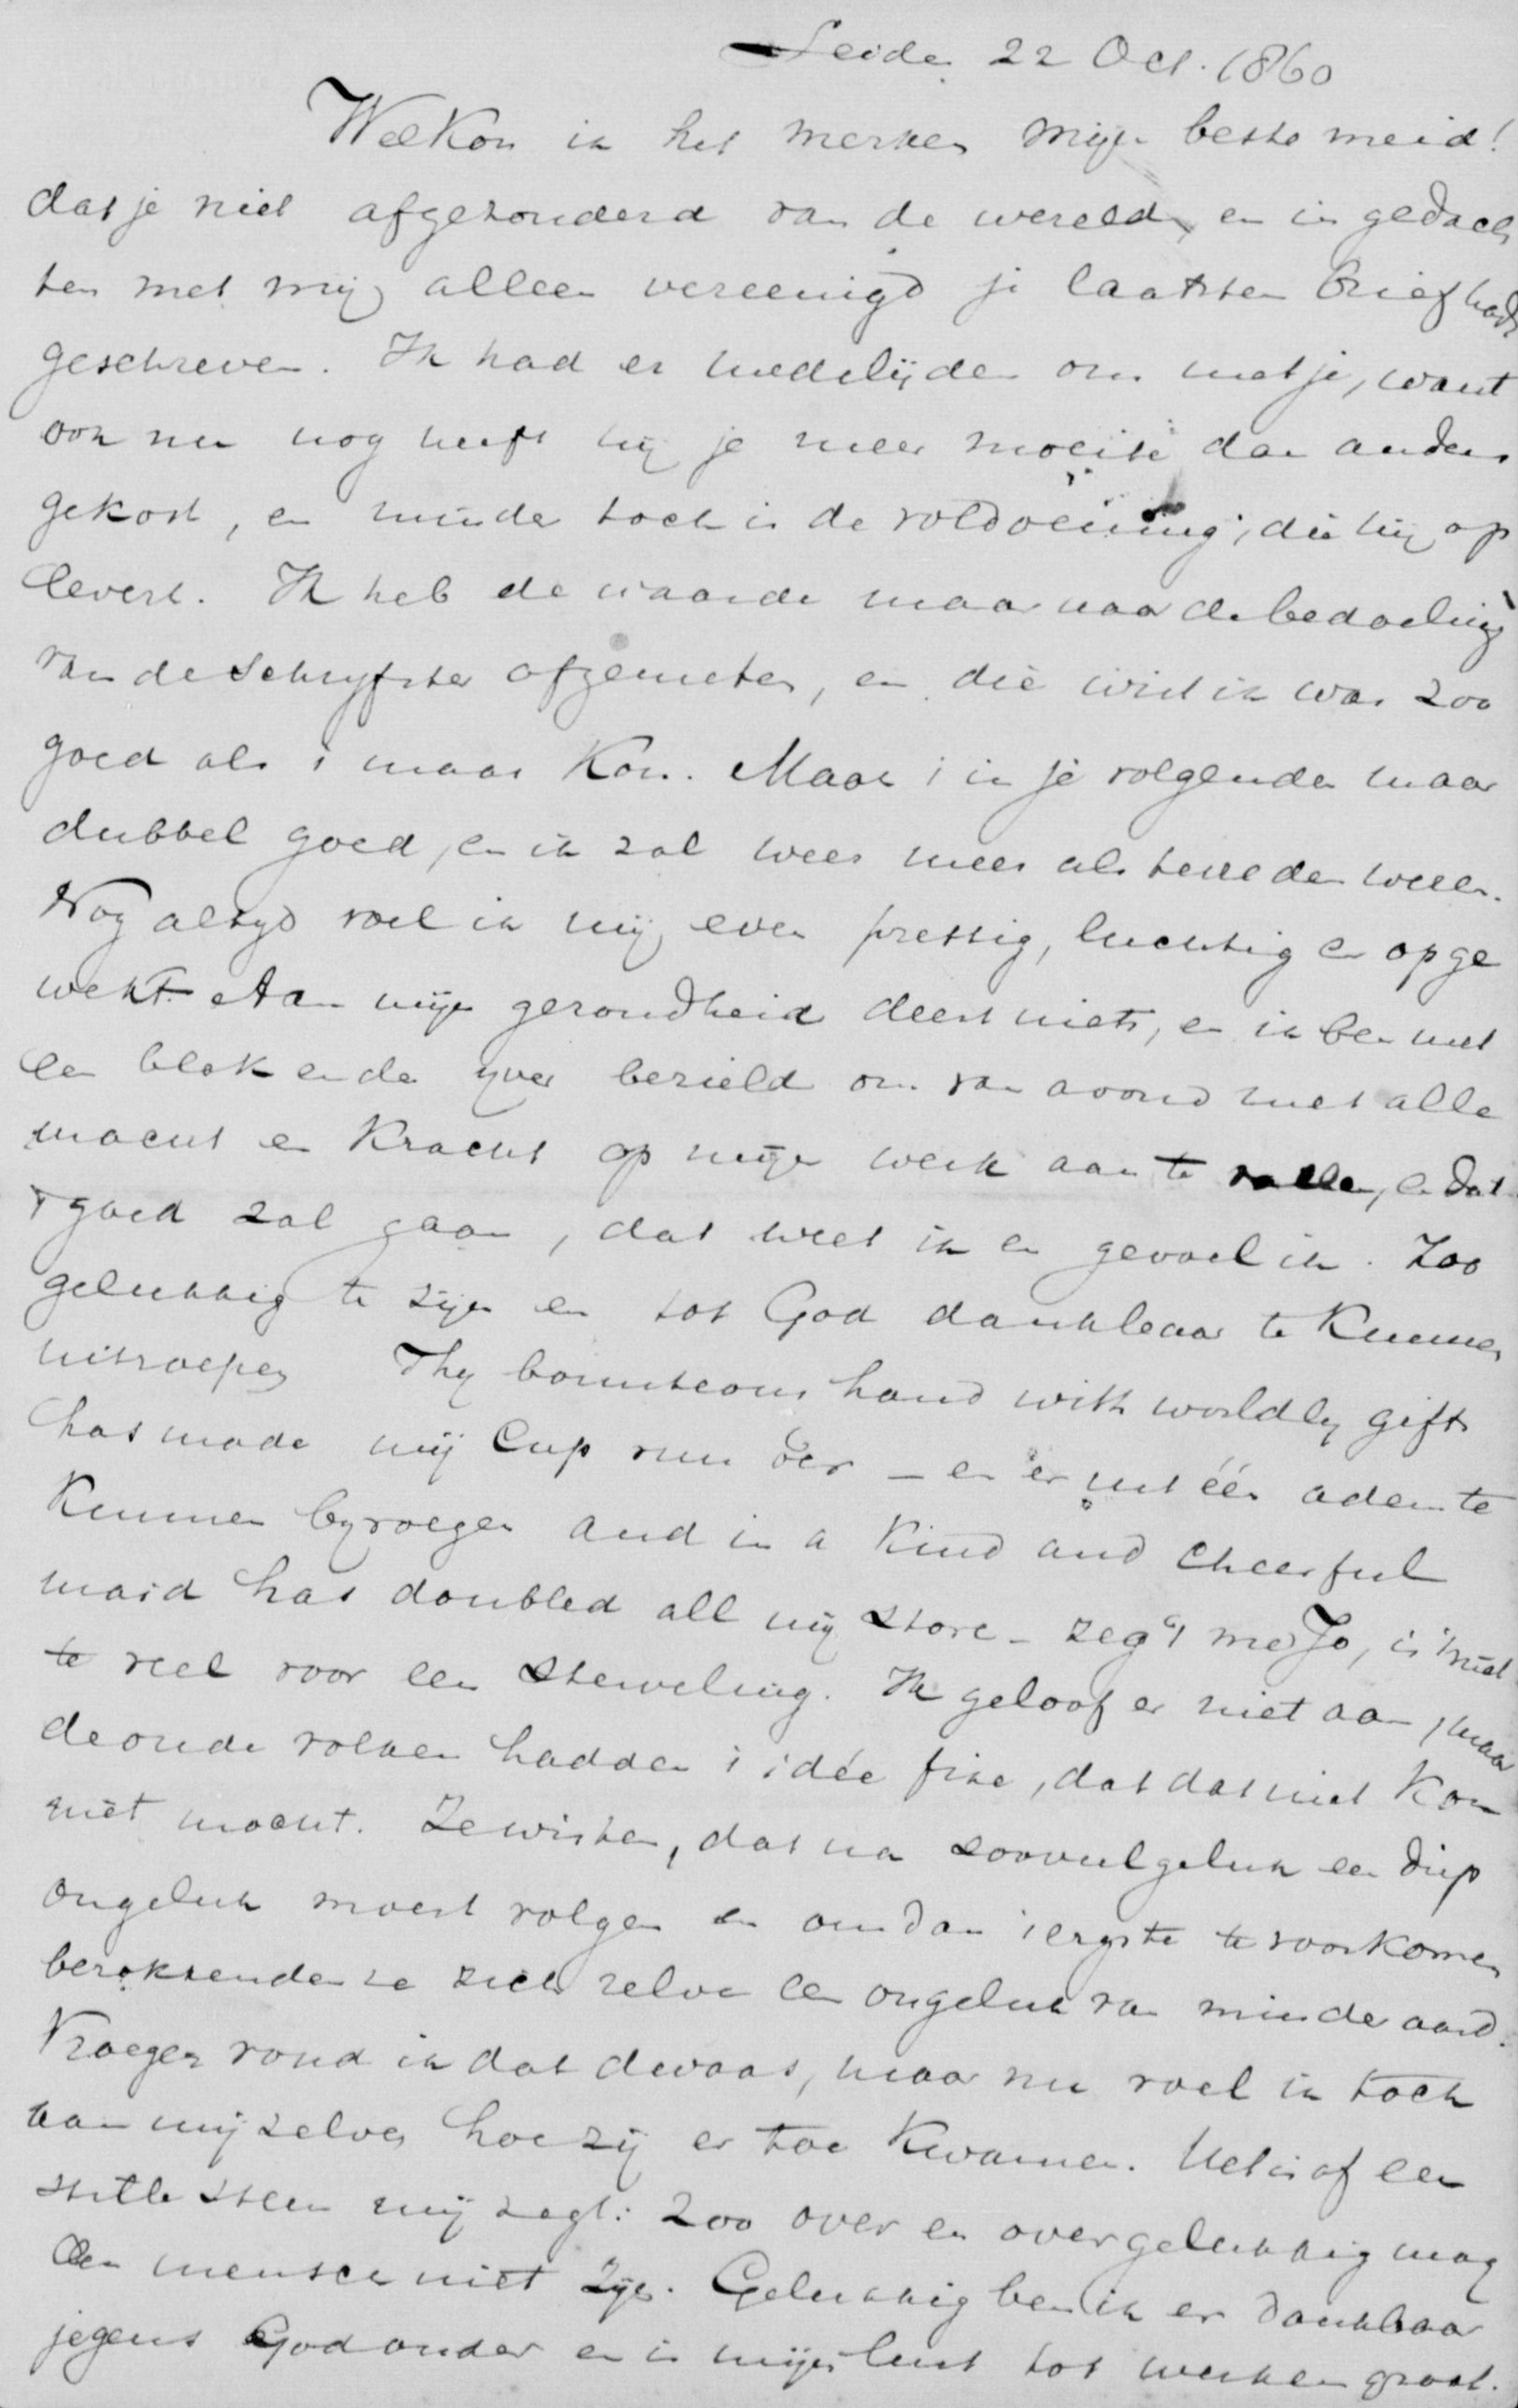 Leiden 22 Oct. 1860
Wel kon ik het merken mijn beste meid!
dat je niet afgezonderd van de wereld, en in gedach
ten met mij alleen vereenigd je laatsten brief hadt
geschreven. Ik had er medelijden om met je, want
ook nu nog heeft hij je meer moeite dan anders
gekost, en minder toch is de voldoening, die hij op
levert. Ik heb de waarde maar naar de bedoeling
van de schrijfster afgemeten, en die wist ik was zoo
goed als 't maar kon. Maak 't in je volgenden maar
dubbel goed, en ik zal weer meer als tevreden wezen.
Nog altijd voel ik mij even prettig, luchtig en opge
wekt. Aan mijn gezondheid deert niets, en ik ben met
een blakende ijver bezield om van avond met alle
macht en kracht op mijn werk aan te vallen, en dat
't goed zal gaan, dat weet ik en gevoel ik. Zoo
gelukkig te zijn en tot God dankbaar te kunnen
uitroepen Thy bounteous hand with worldly gifts
has made my cup run o'er – en er met één adem te
kunnen byvoegen and in a kind and cheerful
maid has doubled all my store – zeg 't me Jo, is 't niet
te veel voor een sterveling. Ik geloof er niet aan, maar
de oude volken hadden 't idée fixe, dat dat niet kon
niet mocht. Ze wisten, dat na zooveel geluk een diep
ongeluk moest volgen en om dan 't ergste te voorkomen
berokkenden ze zich zelve een ongeluk van minder aard.
Vroeger vond ik dat dwaas, maar nu voel ik toch
aan mijzelven hoe zij er toe kwamen. Het is of een
stille stem mij zegt: zoo over en overgelukkig mag
een mensch niet zijn. Gelukkig ben ik er dankbaar
jegens God onder en is mijn lust tot werken groot.